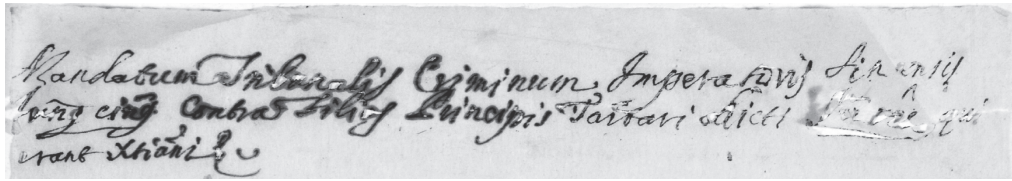 Mandatum Tribunalis Criminum Imperatoris Sinensis
contra Filios Principis Tartari dicti qui
erant Xtiani